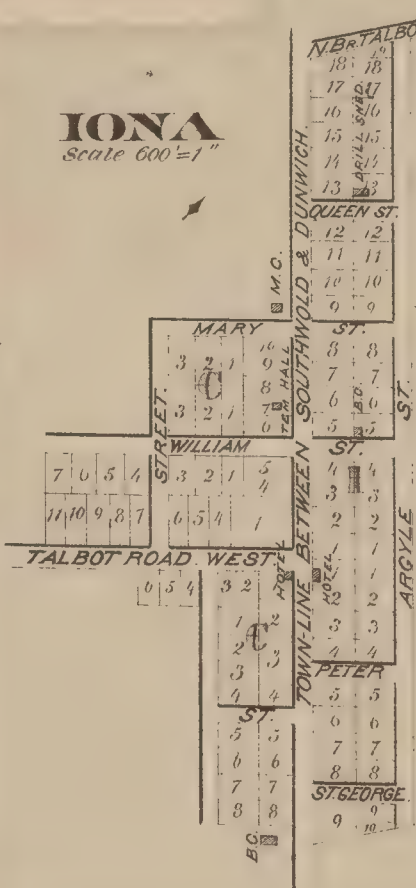 IONA
Scale 600'=1"
N. BR. TALBO
19
18 18
17 17
16 16
15 15
14 14
13 13
DRILL SHED
QUEEN ST.
12 12
11 11
10 10
9 9
M.C.
MARY ST.
TOWN-LINE BETWEEN SOUTHWOLD & DUNWICH.
3 2 1
C
3 2 1
10
9
8
7
6
TEM HALL
8 8
7 7
6 6
5 5
B.C.
STREET.
WILLIAM ST.
ARGYLE ST.
7 6 5 4
11 10 9 8 7
3 2 1
5
4
6 5 4 1
4 4
3 3
2 2
1 1
1 1
2 2
3 3
4 4
TALBOT ROAD WEST
HOTEL
HOTEL
6 5 4
3 2
1 2
2 3
3
4 4
C
PETER ST.
5 5
6 6
7 7
8 8
5 5
6 6
7 7
8 8
ST. GEORGE
9 9
10
B.C.